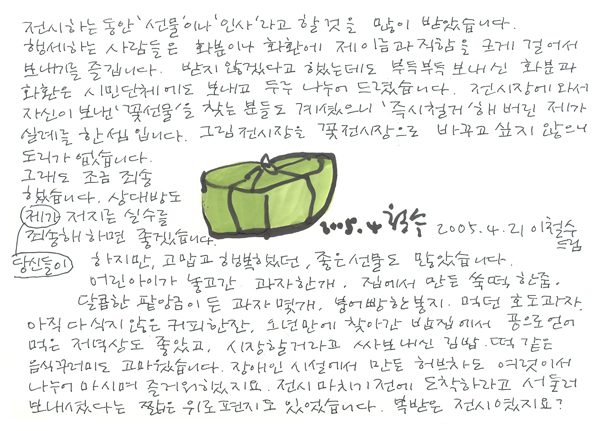 전시하는 동안 '선물'이나 '인사'라고 할 것을 많이 받았습니다.
행세하는 사람들은 화분이나 화환에 제 이름과 직함을 크게 걸어서
보내기를 즐깁니다. 받지 않겠다고 했는데도 부득부득 보내신 화분과
화환은 시민단체에도 보내고 두루 나누어 드렸습니다. 전시장에 와서
자신이 보낸 '꽃선물'을 찾는 분들도 계셨으니 '즉시철거'해 버린 제가
실례를 한 셈입니다. 그림전시장을 꽃전시장으로 바꾸고 싶지 않으니
도리가 없습니다.
그래도 조금 죄송
했습니다. 상대방도
제가 저지른 실수를
죄송해 하면 좋겠습니다.
당신들이
2005.4 철수
2005.4.21 이철수
드림
하지만, 고맙고 행복했던, 좋은 선물도 많았습니다.
어린아이가 놓고간 과자한개, 집에서 만든 쑥떡 한줌,
달콤한 팥앙금이 든 과자 몇개, 붕어빵 한봉지. 먹던 호도과자.
아직 다 식지 않은 커피한잔, 오년만에 찾아간 밥집에서 공으로 얻어
먹은 저녁상도 좋았고, 시장할거라고 싸보내신 김밥. 떡 같은
음식꾸러미도 고마웠습니다. 장애인 시설에서 만든 허브차도 여럿이서
나누어 마시며 즐거워했지요. 전시 마치기 전에 도착하라고 서둘러
보내셨다는 짧은 위로편지도 있었습니다. 복받은 전시였지요?